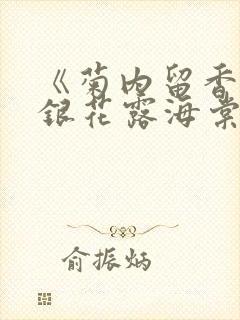 《菊内留香
银花露海棠
俞振炳